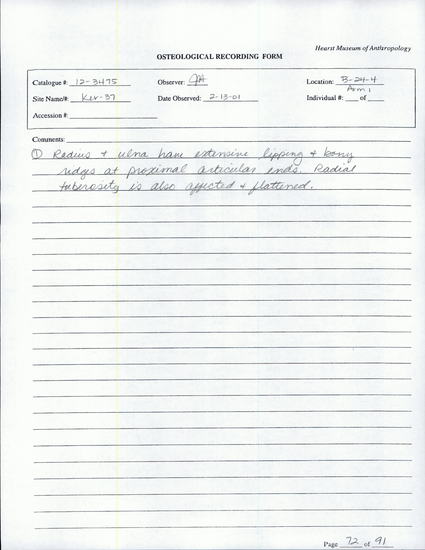 Hearst Museum of Anthropology
OSTEOLOGICAL RECORDING FORM
Catalogue #: 12-3475 Observer: JH Location: B-24-4
Arm 1
Site Name/#: Ker-37 Date Observed: 2-13-01 Individual #: of
Accession #:
Comments:
① Radius + ulna have extensive lipping + bony
ridges at proximal articular ends. Radial
tuberosity is also affected + flattened.
Page 72 of 91